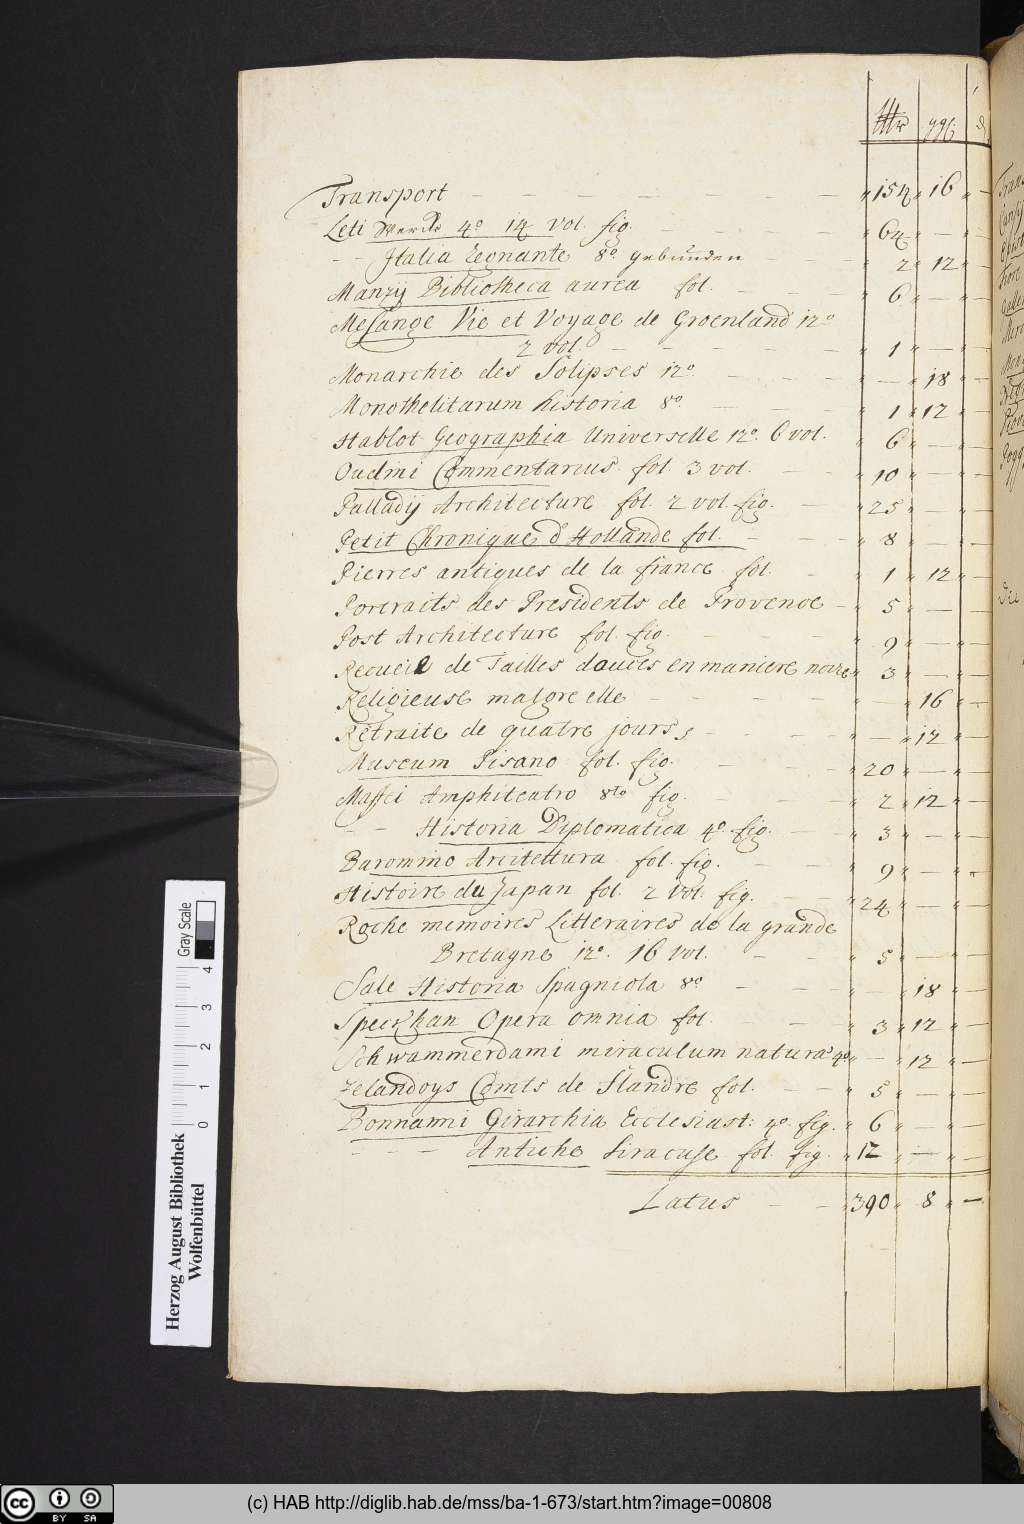 ggl
Transport — — — — — — " 154 " 16 " —
Leti Werke 4º 14 Vol. fig. — — — " 64 " — " —
— — Italia Regnante 8º. gebunden — — " 2 " 12 " —
Manzij Bibliotheca aurea fol. — — " 6 " — " —
Mesange Vie et Voyage de Groenland 12º
2 vol. — — — — " 1 " — " —
Monarchie des Solipses 12º — — — " — " 18 " —
Monothelitarum historia 8º. — — — " 1 " 12 " —
Nablot Geographia Universelle 12º. 6 vol. " 6 " — " —
Oudini Commentarius fol. 3 vol. — — " 10 " — " —
Palladij Architecture fol. 2 vol. fig. — " 25 " — " —
Petit Chronique d'Hollande fol. — — " 8 " — " —
Pierres antiques de la france fol. — " 1 " 12 " —
Portraits des Presidents de Provence — " 5 " — " —
Post Architecture fol. fig. — — " 9 " — " —
Recueil de Tailles douces en maniere noire " 3 " — " —
Religieuse malgre elle — — — — " — " 16 " —
Retraite de quatre jours — — — " — " 12 " —
Museum Pisano fol. fig. — — " 20 " — " —
Maffei Amphiteatro 8vo fig. — — — " 2 " 12 " —
— — Historia Diplomatica 4º. fig. — " 3 " — " —
Baromino Arcitettura fol. fig. — — " 9 " — " —
Histoire du Japan fol. 2 Vol. fig. — — " 24 " — " —
Roche memoires Litteraires de la grande
Bretagne 12º. 16 vol. — — " 5 " — " —
Sale Historia Spagniola 8º — — — " — " 18 " —
Speckhan Opera omnia fol. — — " 3 " 12 " —
Schwammerdami miraculum naturæ 4º " — " 12 " —
Zelandoys Comts de Flandre fol. — — " 5 " — " —
Bonnanni Girarchia Ecclesiast: 4º. fig. " 6 " — " —
— — — Antiche Siracuse fol. fig. " 12 " — " —
Latus — — " 390 " 8 " —
Herzog August Bibliothek
Wolfenbüttel
Gray Scale
0 1 2 3 4
cc BY SA
(c) HAB http://diglib.hab.de/mss/ba-1-673/start.htm?image=00808